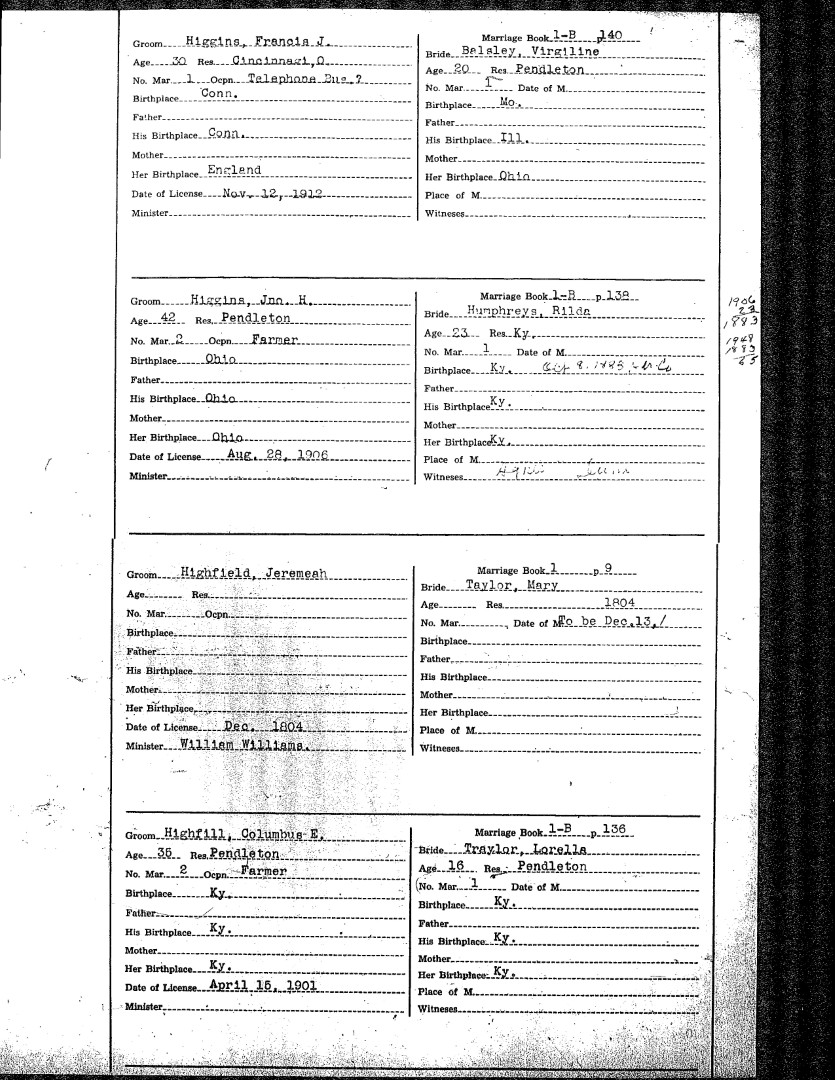 Groom Higgins, Francis J.
Age 30 Res. Cincinnati, O.
No. Mar 1 Ocpn. Telephone Bus.?
Birthplace Conn.
Father
His Birthplace Conn.
Mother
Her Birthplace England
Date of License Nov. 12, 1912
Minister
Marriage Book 1-B p 140
Bride Belsley, Virgiline
Age 20 Res Pendleton
No. Mar 1 Date of M
Birthplace Mo.
Father
His Birthplace Ill.
Mother
Her Birthplace Ohio
Place of M
Witneses
Groom Higgins, Jno. H.
Age 42 Res Pendleton
No. Mar 2 Ocpn. Farmer
Birthplace Ohio
Father
His Birthplace Ohio
Mother
Her Birthplace Ohio
Date of License Aug. 28, 1906
Minister
Marriage Book 1-B p 138
Bride Humphreys, Rilda
Age 23 Res Ky.
No. Mar 1 Date of M
Birthplace Ky. 8, 1883
Father
His Birthplace Ky.
Mother
Her Birthplace Ky.
Place of M
Witneses
1906
23
1883
1948
1883
65
Groom Highfield, Jeremeah
Age Res
No. Mar Ocpn
Birthplace
Father
His Birthplace
Mother
Her Birthplace
Date of License Dec. 1804
Minister William Williams.
Marriage Book 1 p 9
Bride Taylor, Mary
Age Res 1804
No. Mar Date of M To be Dec.13,/
Birthplace
Father
His Birthplace
Mother
Her Birthplace
Place of M
Witneses
Groom Highfill, Columbus E.
Age 36 Res Pendleton
No. Mar 2 Ocpn Farmer
Birthplace Ky.
Father
His Birthplace Ky.
Mother
Her Birthplace Ky.
Date of License April 15, 1901
Minister
Marriage Book 1-B p 136
Bride Traylor, Lorella
Age 16 Res Pendleton
No. Mar 1 Date of M
Birthplace Ky.
Father
His Birthplace Ky.
Mother
Her Birthplace Ky.
Place of M
Witneses